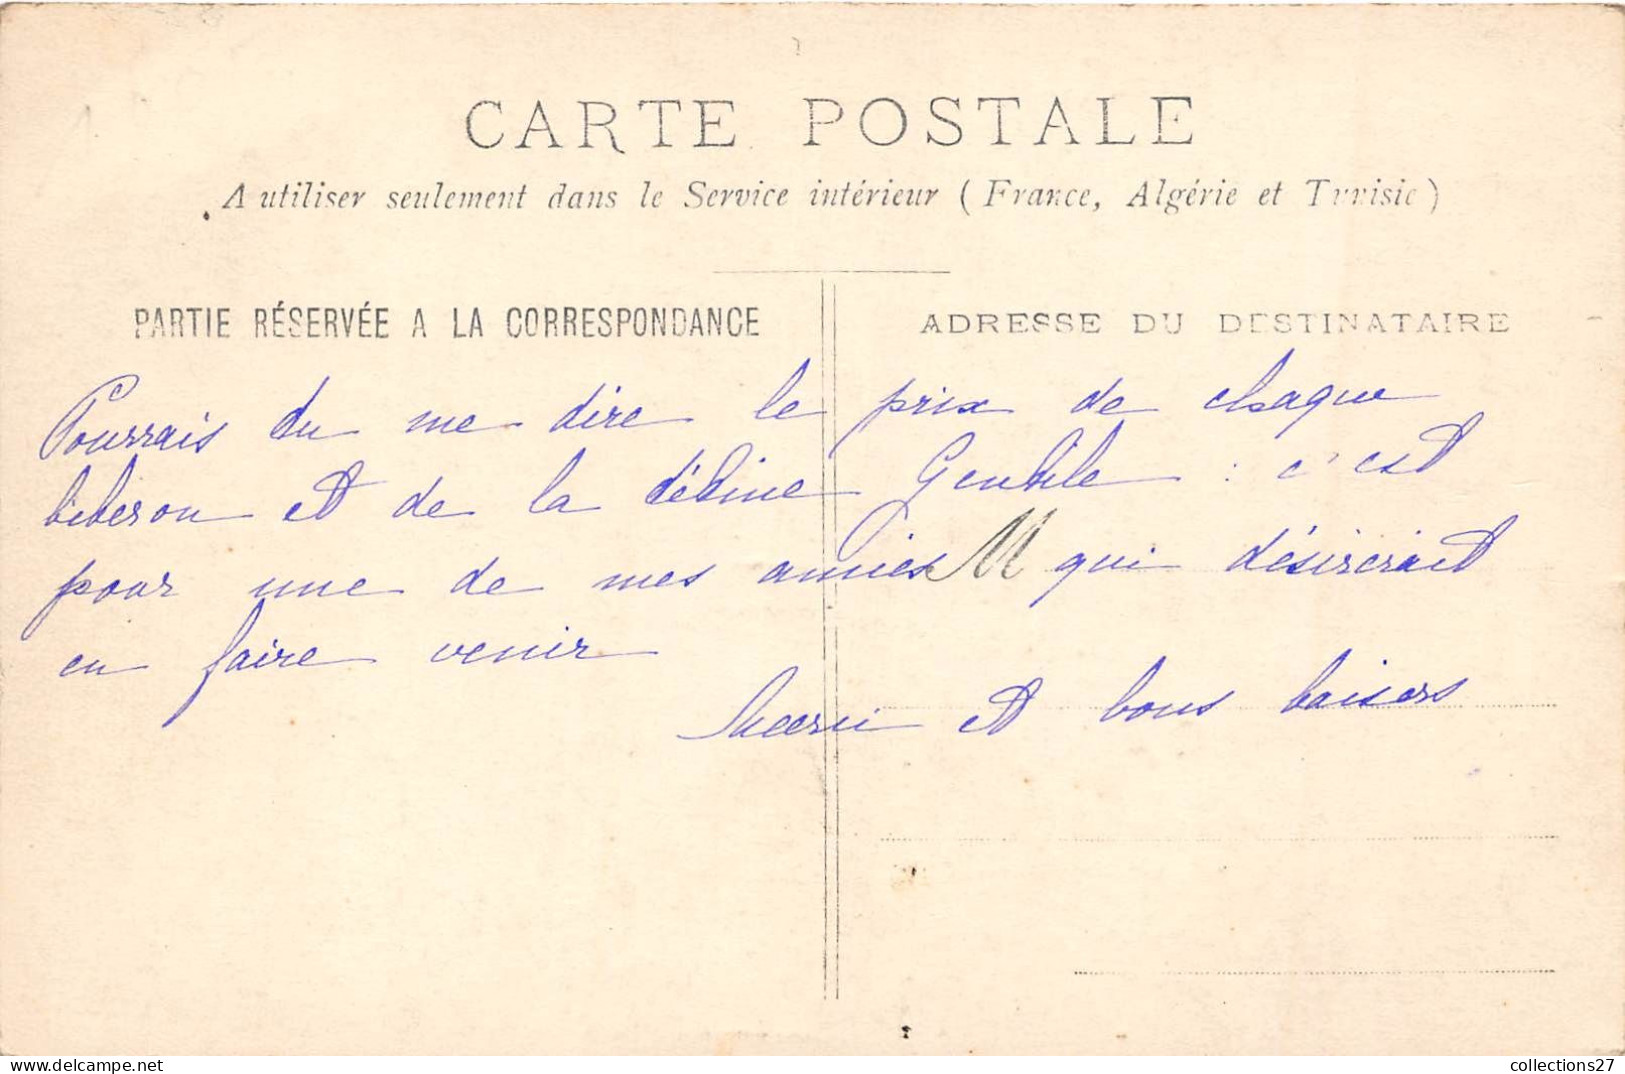 CARTE POSTALE
A utiliser seulement dans le Service intérieur (France, Algérie et Tunisie)
PARTIE RÉSERVÉE A LA CORRESPONDANCE
ADRESSE DU DESTINATAIRE
Pourrais tu me dire le prix de chaque
biberon et de la tétine Gentile : c'est
pour une de mes amies M qui désirerait
en faire venir
Merci et bons baisers
collections27